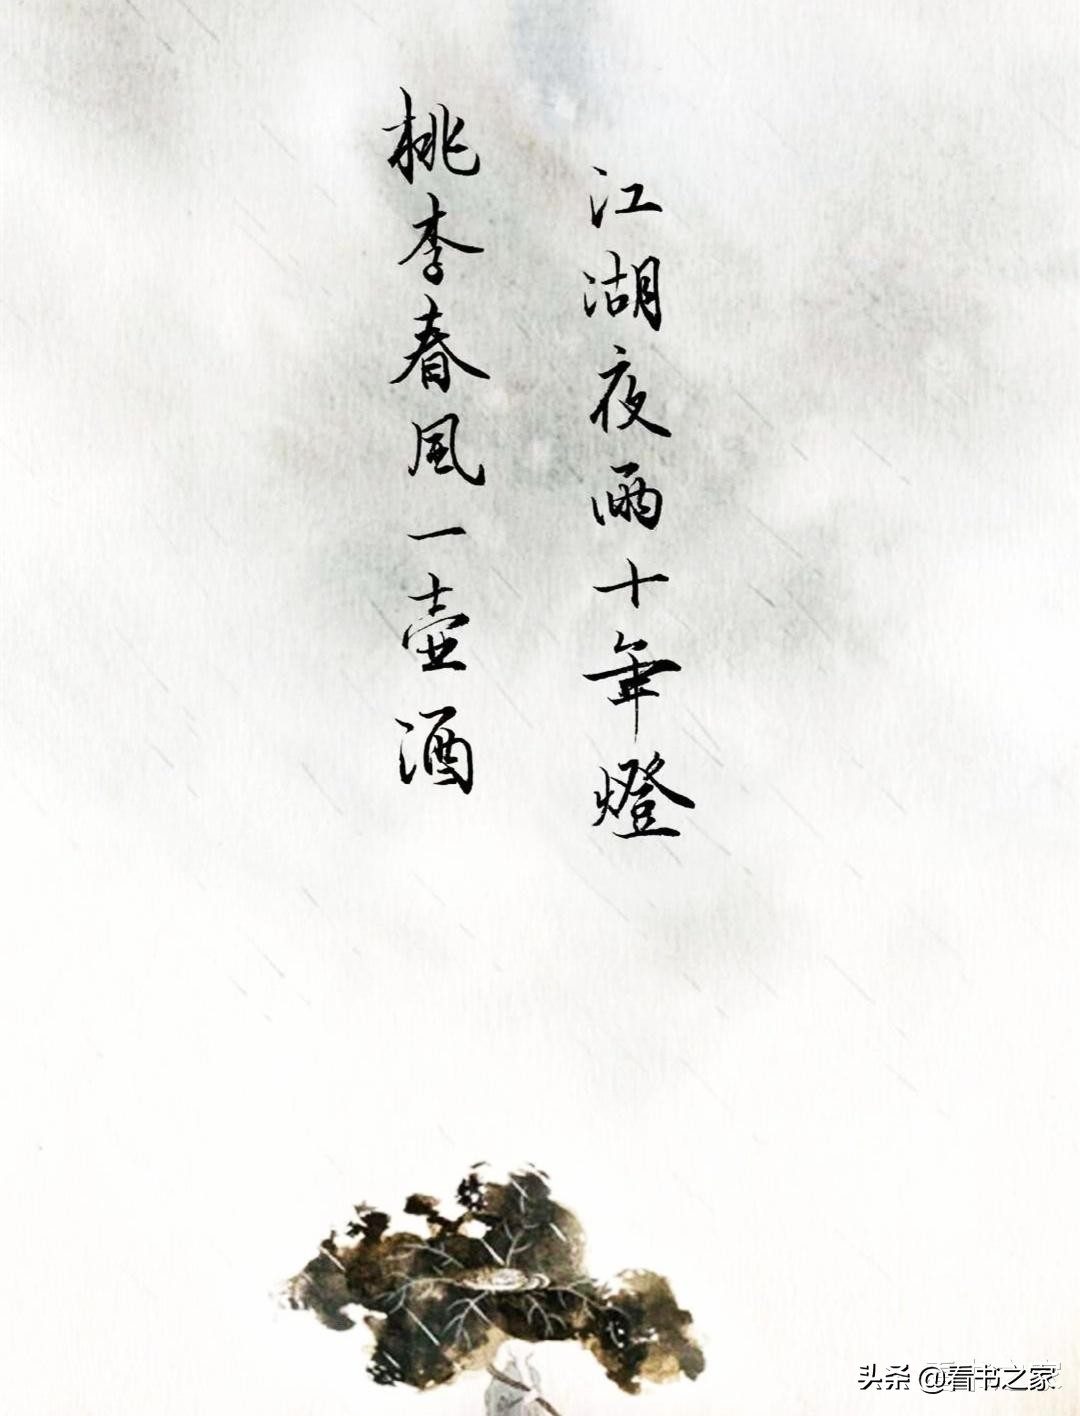 桃李春風一壺酒
江湖夜雨十年燈
头条 @看书之家